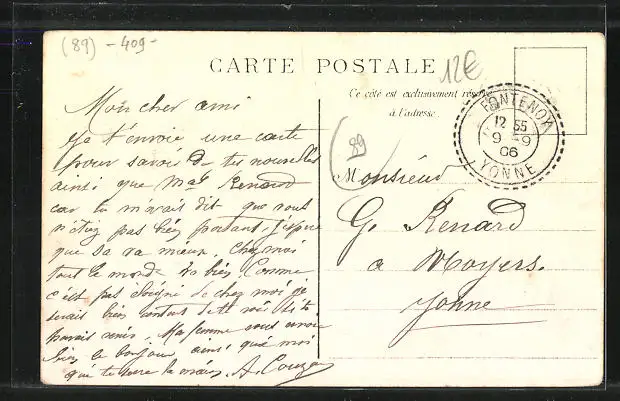 (89) -409-
12€
CARTE POSTALE
Ce côté est exclusivement réservé
à l'adresse
FONTENOY
12 55
9 -9
06
YONNE
(89
Mon cher ami
Je t'envoie une carte
pour savoir de tes nouvelles
ainsi que Mme Renard
car tu m'avais dit que vous
n'étiez pas bien portant j'espère
que sa va mieux. Chez moi
tout le monde va bien. Comme
c'est pas éloigné de chez moi je
serais bien content de
Ma femme vous envoie
bien le bonjour ainsi que moi
qui te serre la main. A.
Monsieur
G. Renard
a
Yonne